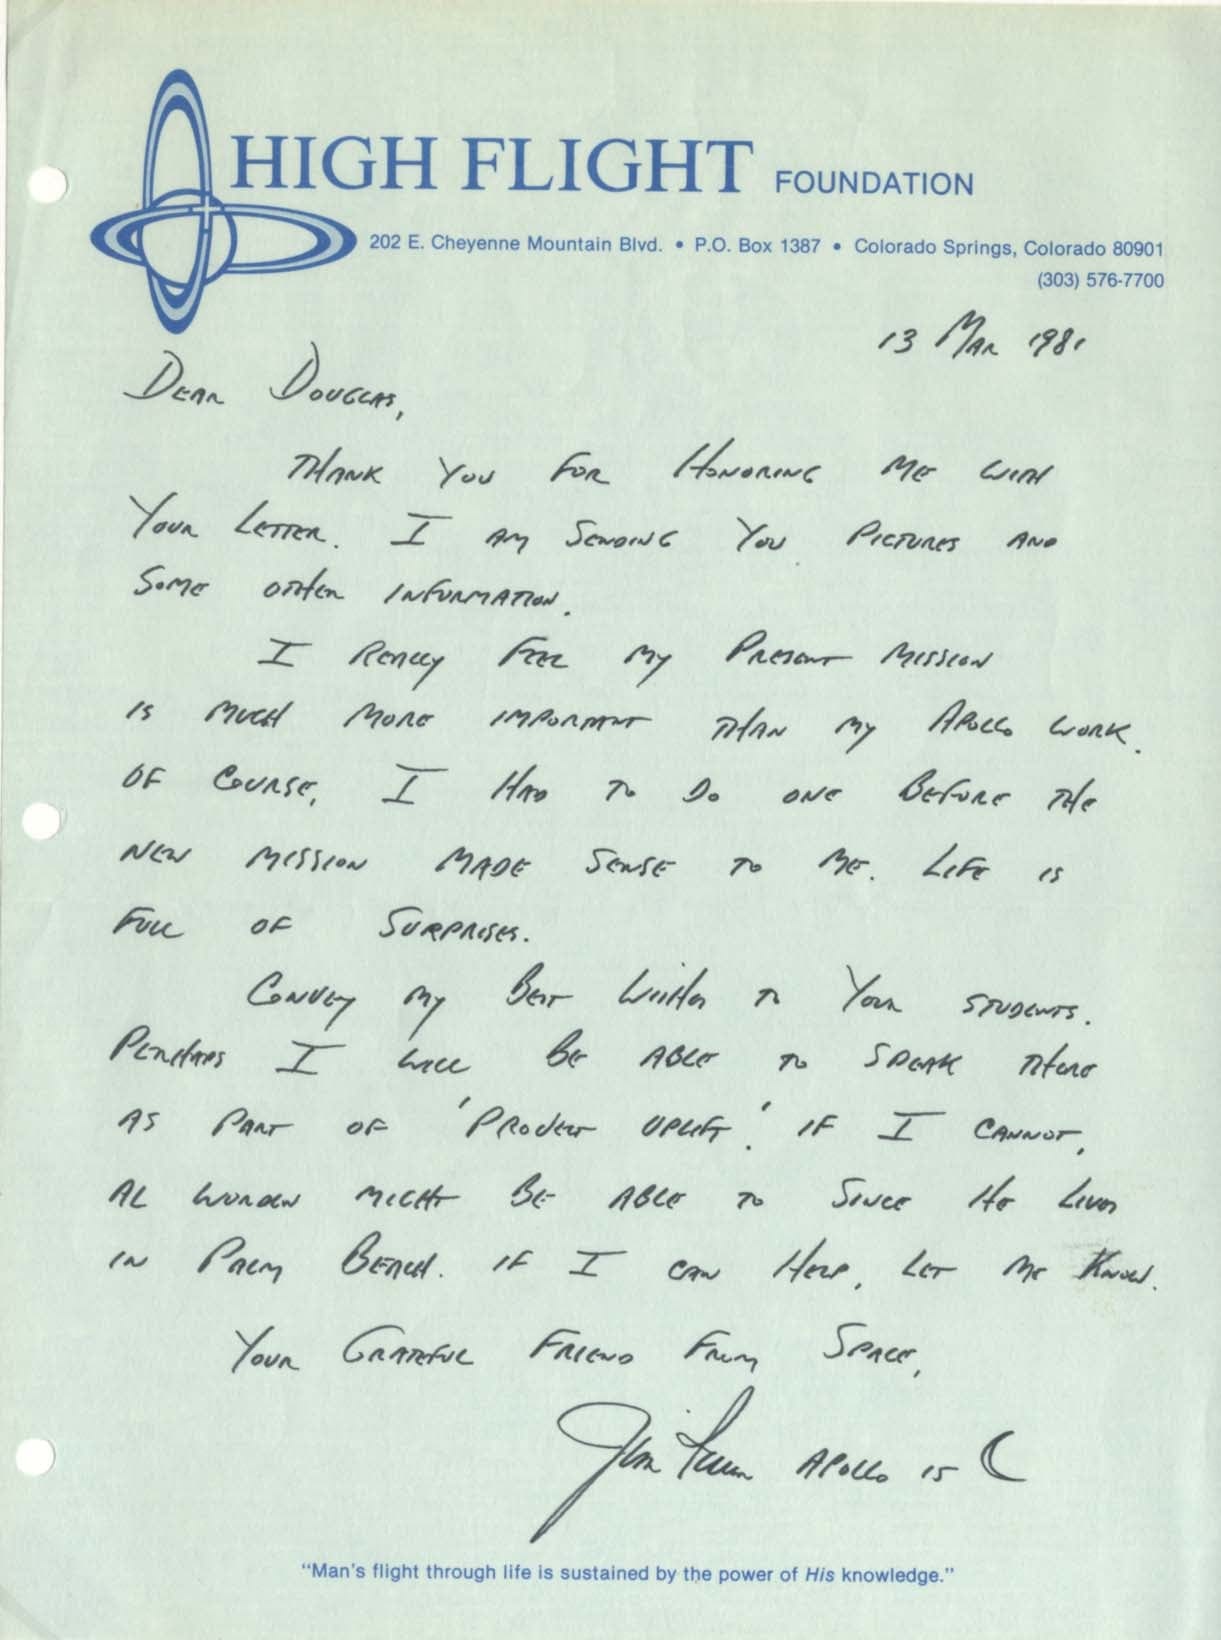 HIGH FLIGHT FOUNDATION
202 E. Cheyenne Mountain Blvd. • P.O. Box 1387 • Colorado Springs, Colorado 80901
(303) 576-7700
13 MAR 1981
DEAR DOUGLAS,
THANK YOU FOR HONORING ME WITH
YOUR LETTER. I AM SENDING YOU PICTURES AND
SOME OTHER INFORMATION.
I REALLY FEEL MY PRESENT MISSION
IS MUCH MORE IMPORTANT THAN MY APOLLO WORK.
OF COURSE, I HAD TO DO ONE BEFORE THE
NEW MISSION MADE SENSE TO ME. LIFE IS
FULL OF SURPRISES.
CONVEY MY BEST WISHES TO YOUR STUDENTS.
PERHAPS I WILL BE ABLE TO SPEAK THERE
AS PART OF 'PROJECT UPLIFT.' IF I CANNOT,
AL WORDEN MIGHT BE ABLE TO SINCE HE LIVES
IN PALM BEACH. IF I CAN HELP, LET ME KNOW.
YOUR GRATEFUL FRIEND FROM SPACE,
Jim Irwin APOLLO 15
"Man's flight through life is sustained by the power of His knowledge."